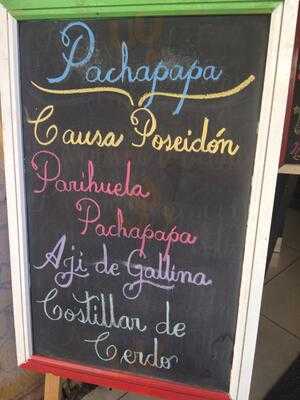 Pachapapa
Causa Poseidón
Parihuela
Pachapapa
Aji de Gallina
Costillar de
Cerdo